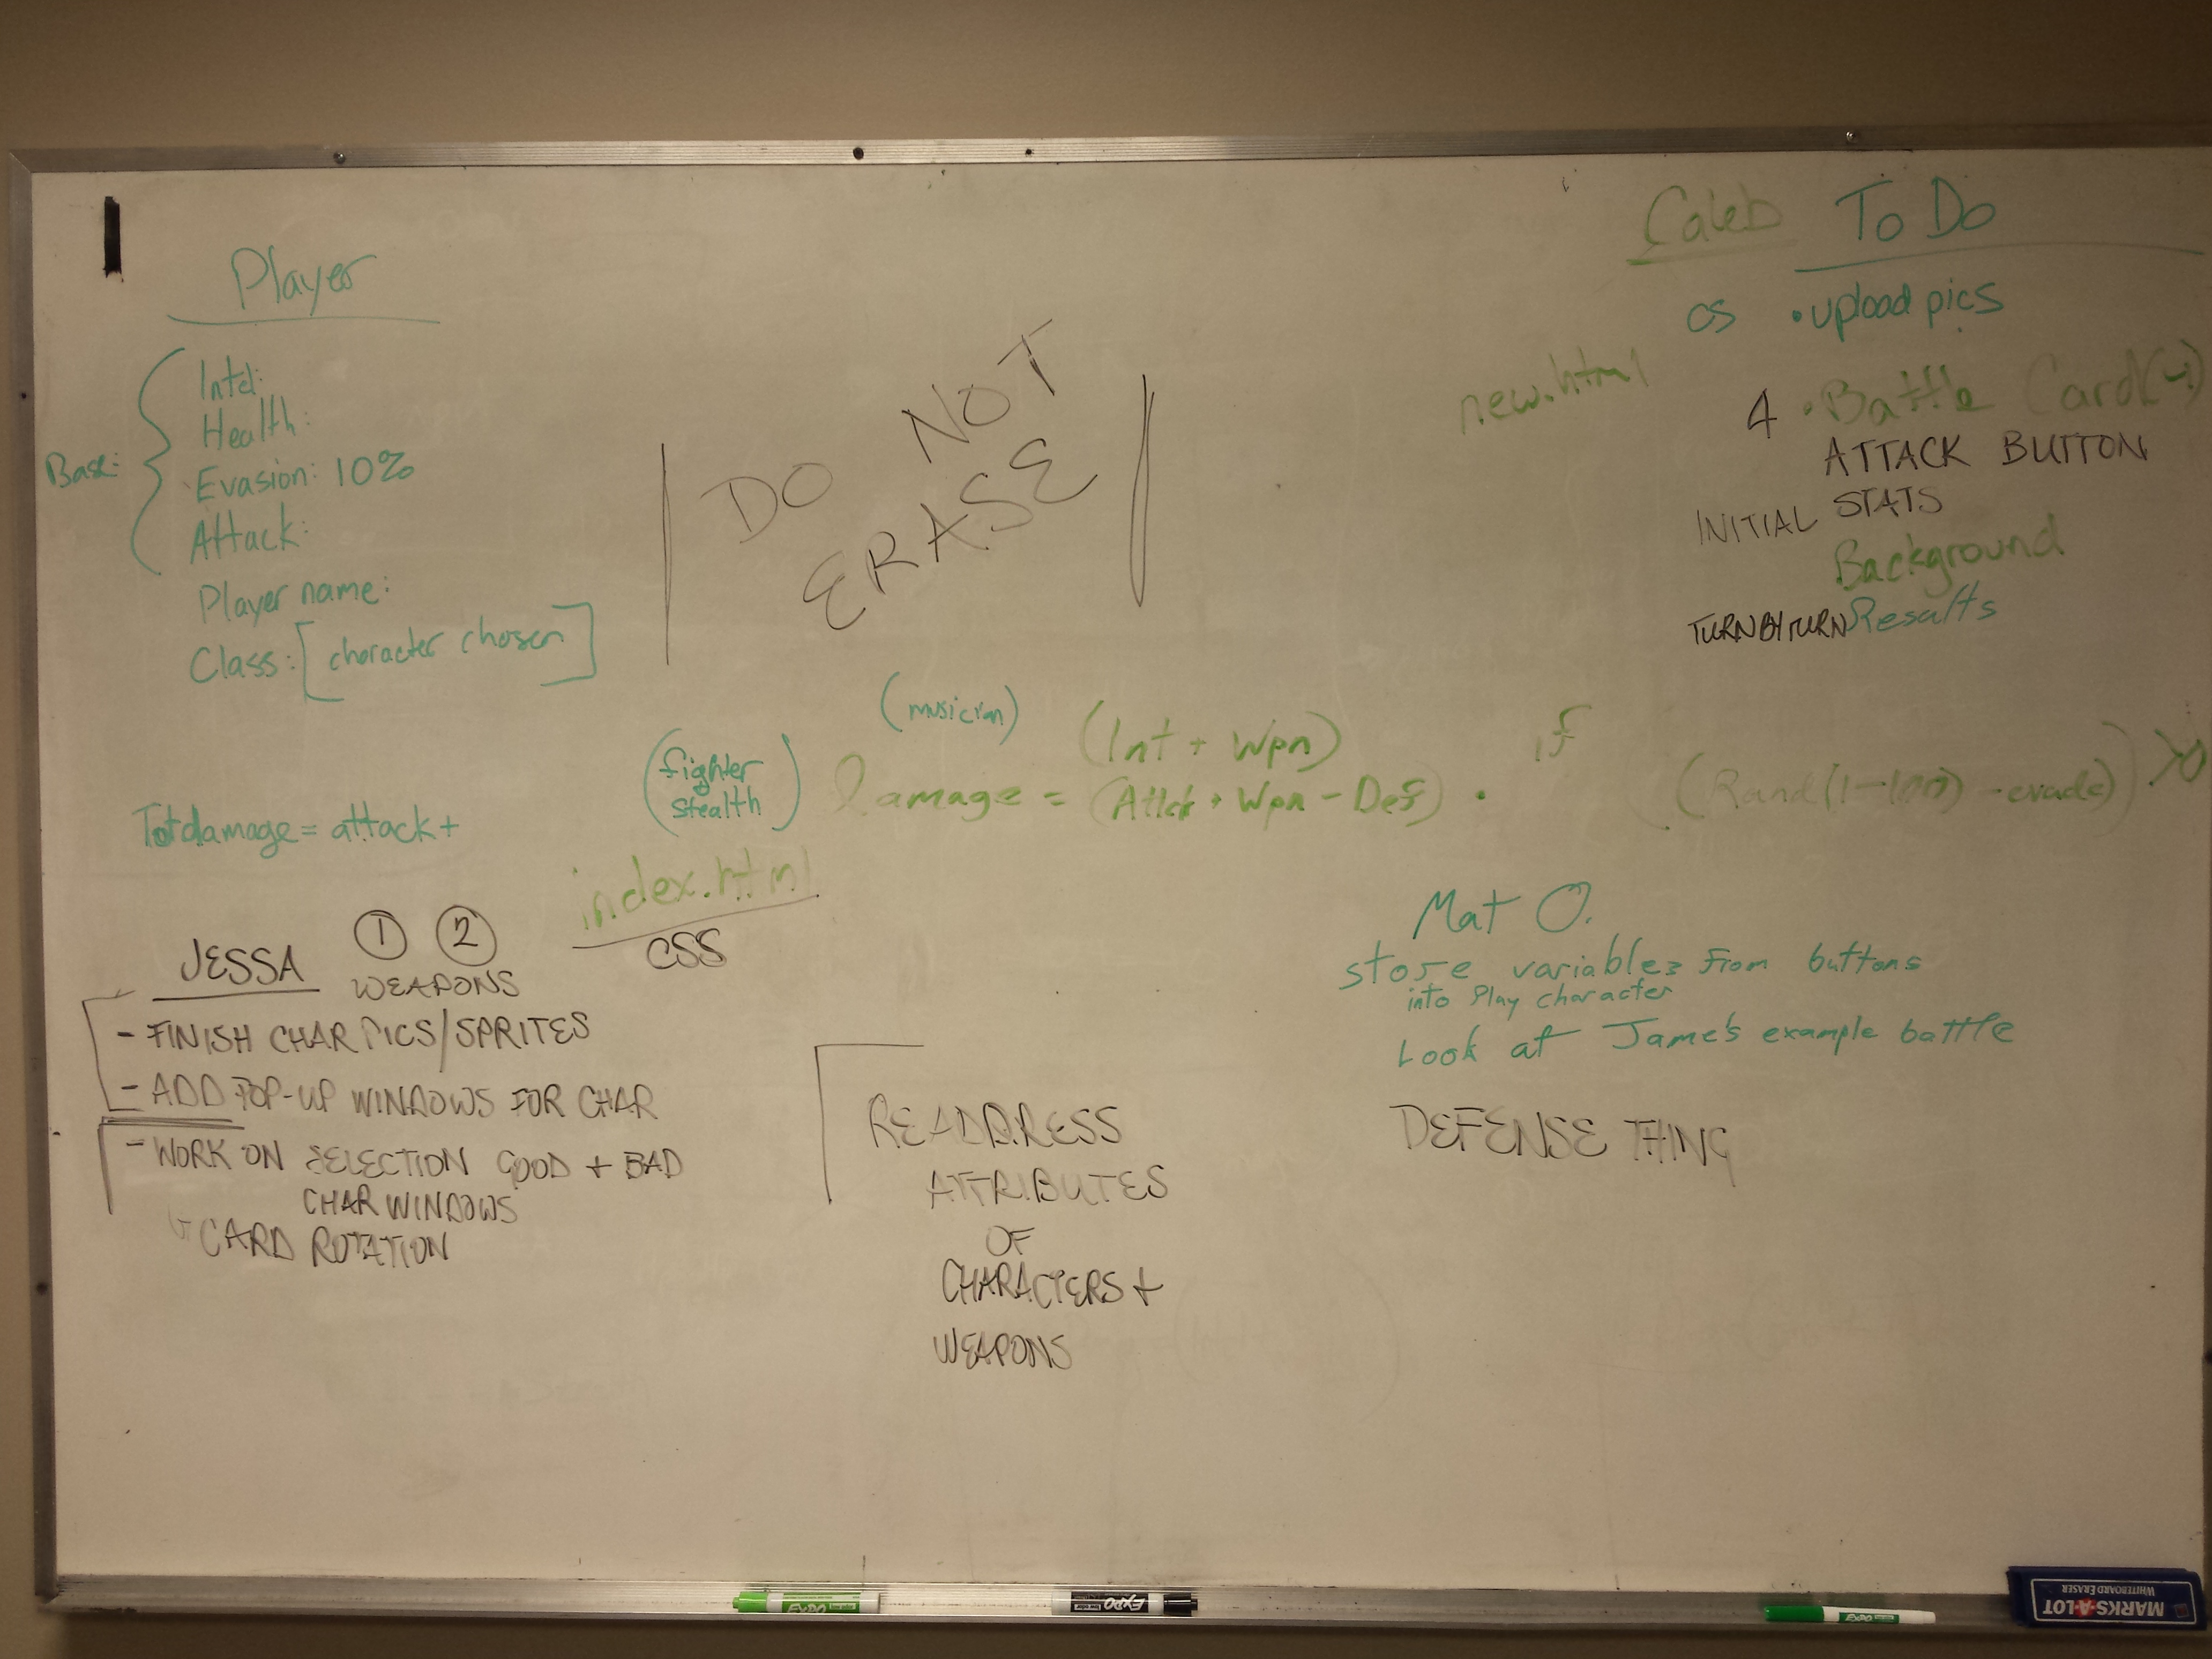 Player
Base:
Intel:
Health:
Evasion: 10%
Attack:
Player name:
Class: [character chosen]
DO NOT
ERASE
Caleb To Do
• upload pics
new.html
4 • Battle Card (4)
ATTACK BUTTON
INITIAL STATS
Background
TURN BY TURN Results
(musician) (Int + Wpn)
(fighter
stealth)
Damage = (Attck + Wpn - Def) • if (Rand(1-100) - evade) >0
Tot damage = attack +
index.html
CSS
JESSA ① ②
WEAPONS
- FINISH CHAR PICS/SPRITES
- ADD POP-UP WINDOWS FOR CHAR
- WORK ON SELECTION GOOD + BAD
CHAR WINDOWS
CARD ROTATION
READDRESS
ATTRIBUTES
OF
CHARACTERS +
WEAPONS
Mat O.
store variables from buttons
into Play character
Look at Jame's example battle
DEFENSE THING
EXPO
EXPO
EXPO
MARKS-A-LOT
WHITEBOARD ERASER